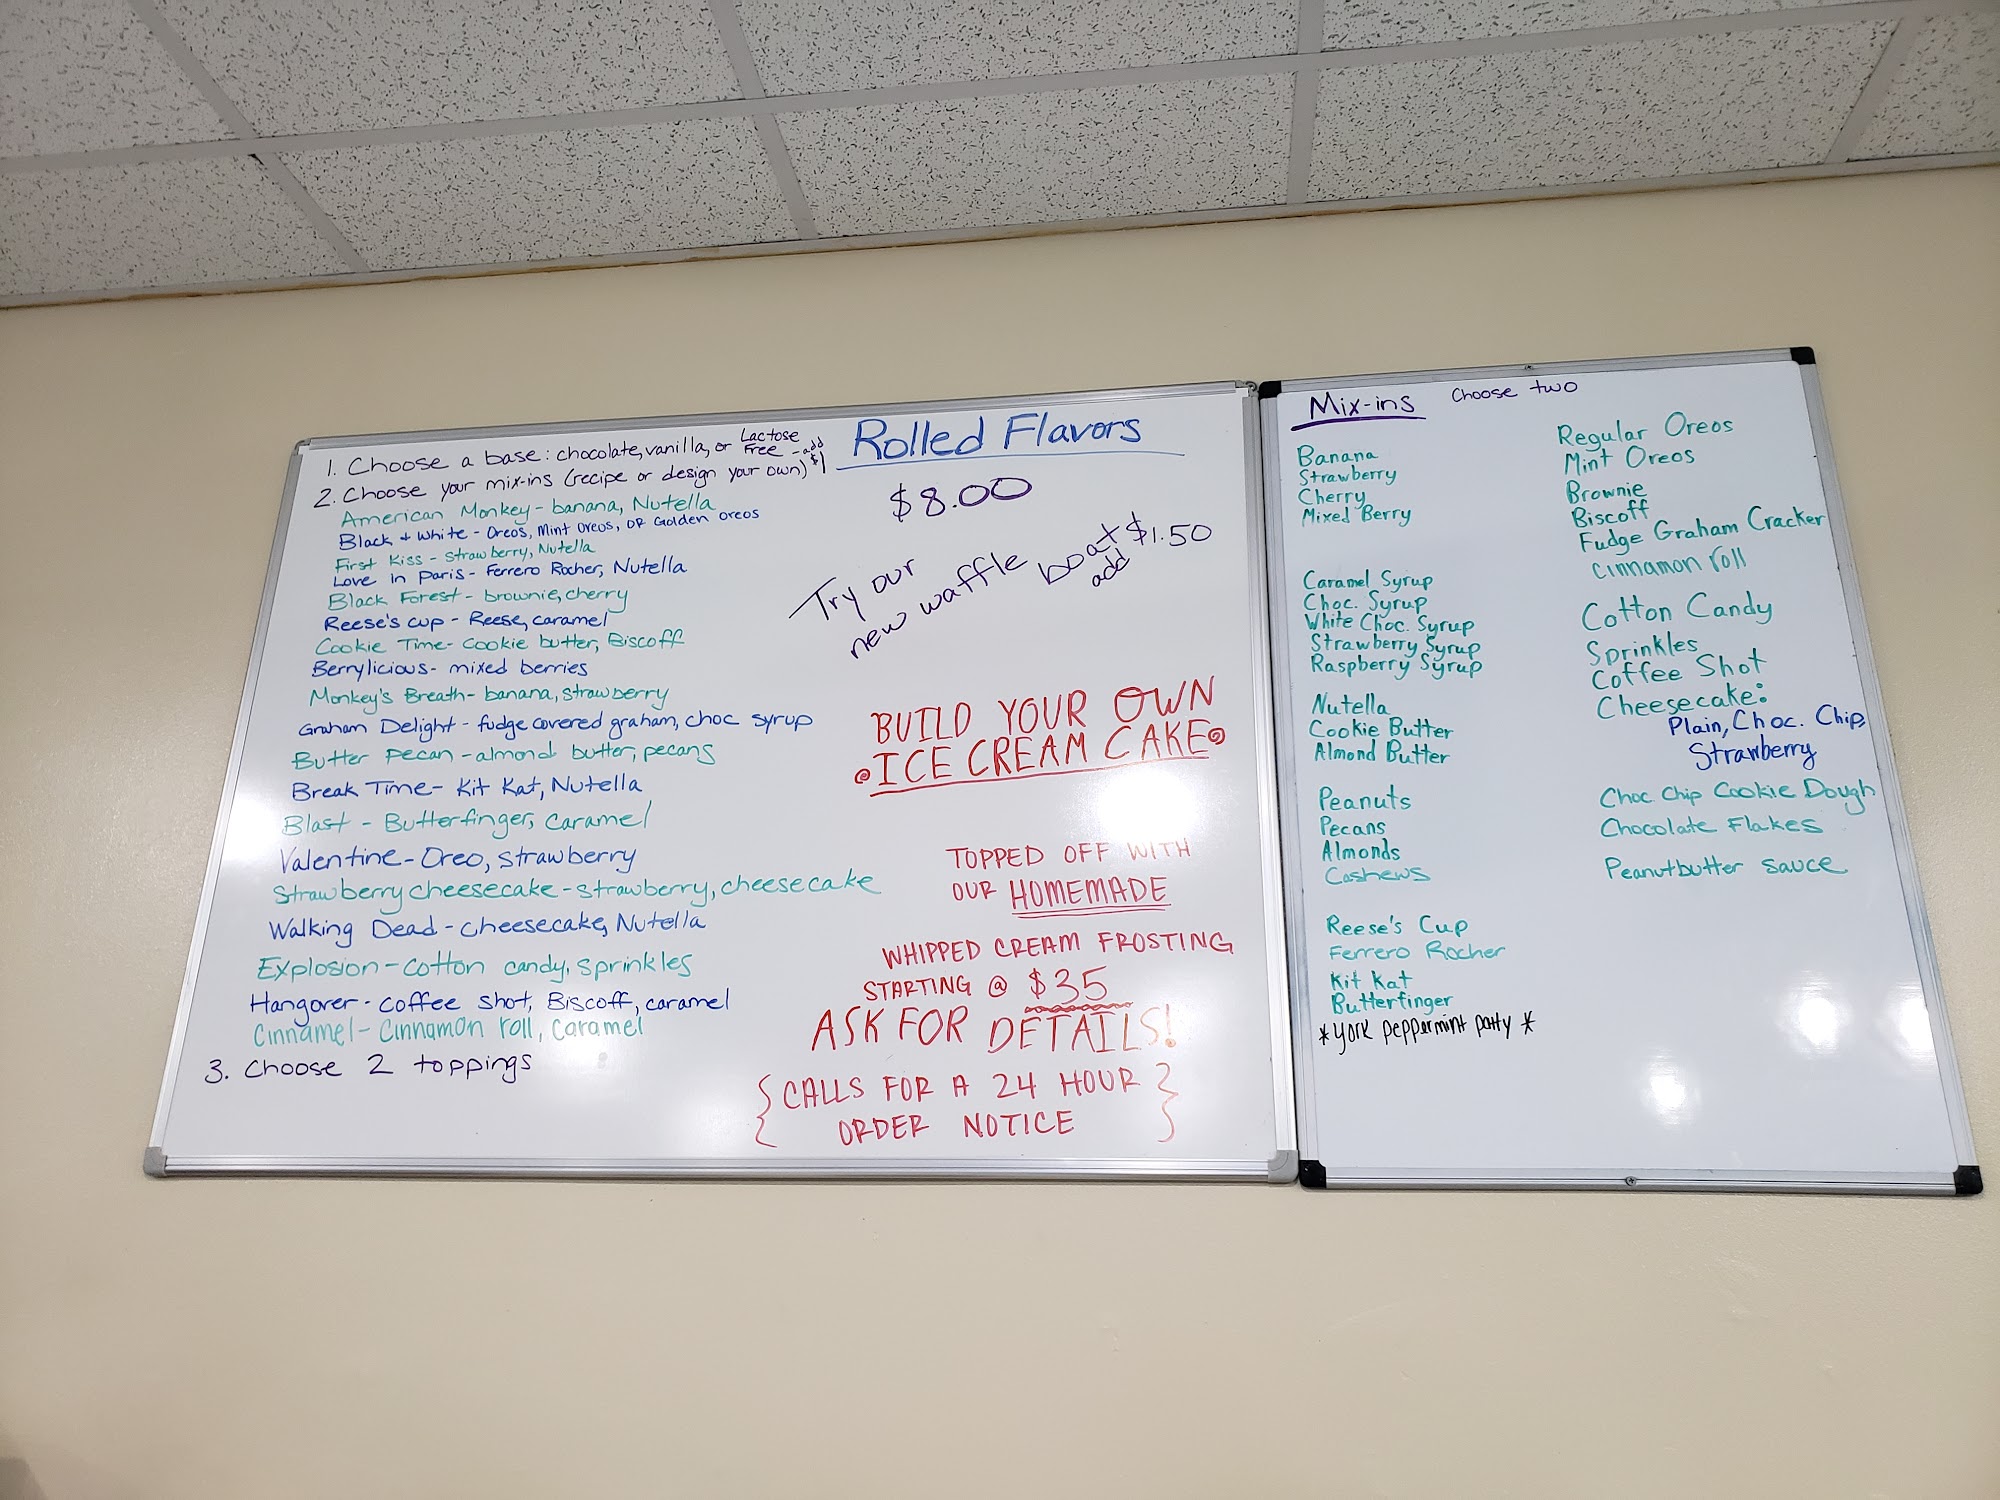 Rolled Flavors
1. Choose a base: chocolate, vanilla, or Lactose Free - add $1
2. Choose your mix-ins (recipe or design your own)
American Monkey - banana, Nutella
Black + White - Oreos, Mint Oreos, OR Golden Oreos
First Kiss - Strawberry, Nutella
Love in Paris - Ferrero Rocher, Nutella
Black Forest - brownie, cherry
Reese's cup - Reese, caramel
Cookie Time - Cookie butter, Biscoff
Berrylicious - mixed berries
Monkey's Breath - banana, strawberry
Graham Delight - fudge covered graham, choc syrup
Butter Pecan - almond butter, pecans
Break Time - Kit Kat, Nutella
Blast - Butterfinger, caramel
Valentine - Oreo, strawberry
Strawberry cheesecake - strawberry, cheesecake
Walking Dead - cheesecake, Nutella
Explosion - cotton candy, sprinkles
Hangover - coffee shot, Biscoff, caramel
Cinnamel - Cinnamon roll, caramel
3. Choose 2 toppings
$8.00
Try our
new waffle boat add $1.50
BUILD YOUR OWN
ICE CREAM CAKE
TOPPED OFF WITH
OUR HOMEMADE
WHIPPED CREAM FROSTING
STARTING @ $35
ASK FOR DETAILS!
{CALLS FOR A 24 HOUR
ORDER NOTICE}
Mix-ins Choose two
Banana
Strawberry
Cherry
Mixed Berry
Caramel Syrup
Choc. Syrup
White Choc. Syrup
Strawberry Syrup
Raspberry Syrup
Nutella
Cookie Butter
Almond Butter
Peanuts
Pecans
Almonds
Cashews
Reese's Cup
Ferrero Rocher
Kit Kat
Butterfinger
*York peppermint patty*
Regular Oreos
Mint Oreos
Brownie
Biscoff
Fudge Graham Cracker
cinnamon roll
Cotton Candy
Sprinkles
Coffee Shot
Cheesecake:
Plain, Choc. Chip,
Strawberry
Choc Chip Cookie Dough
Chocolate Flakes
Peanutbutter sauce